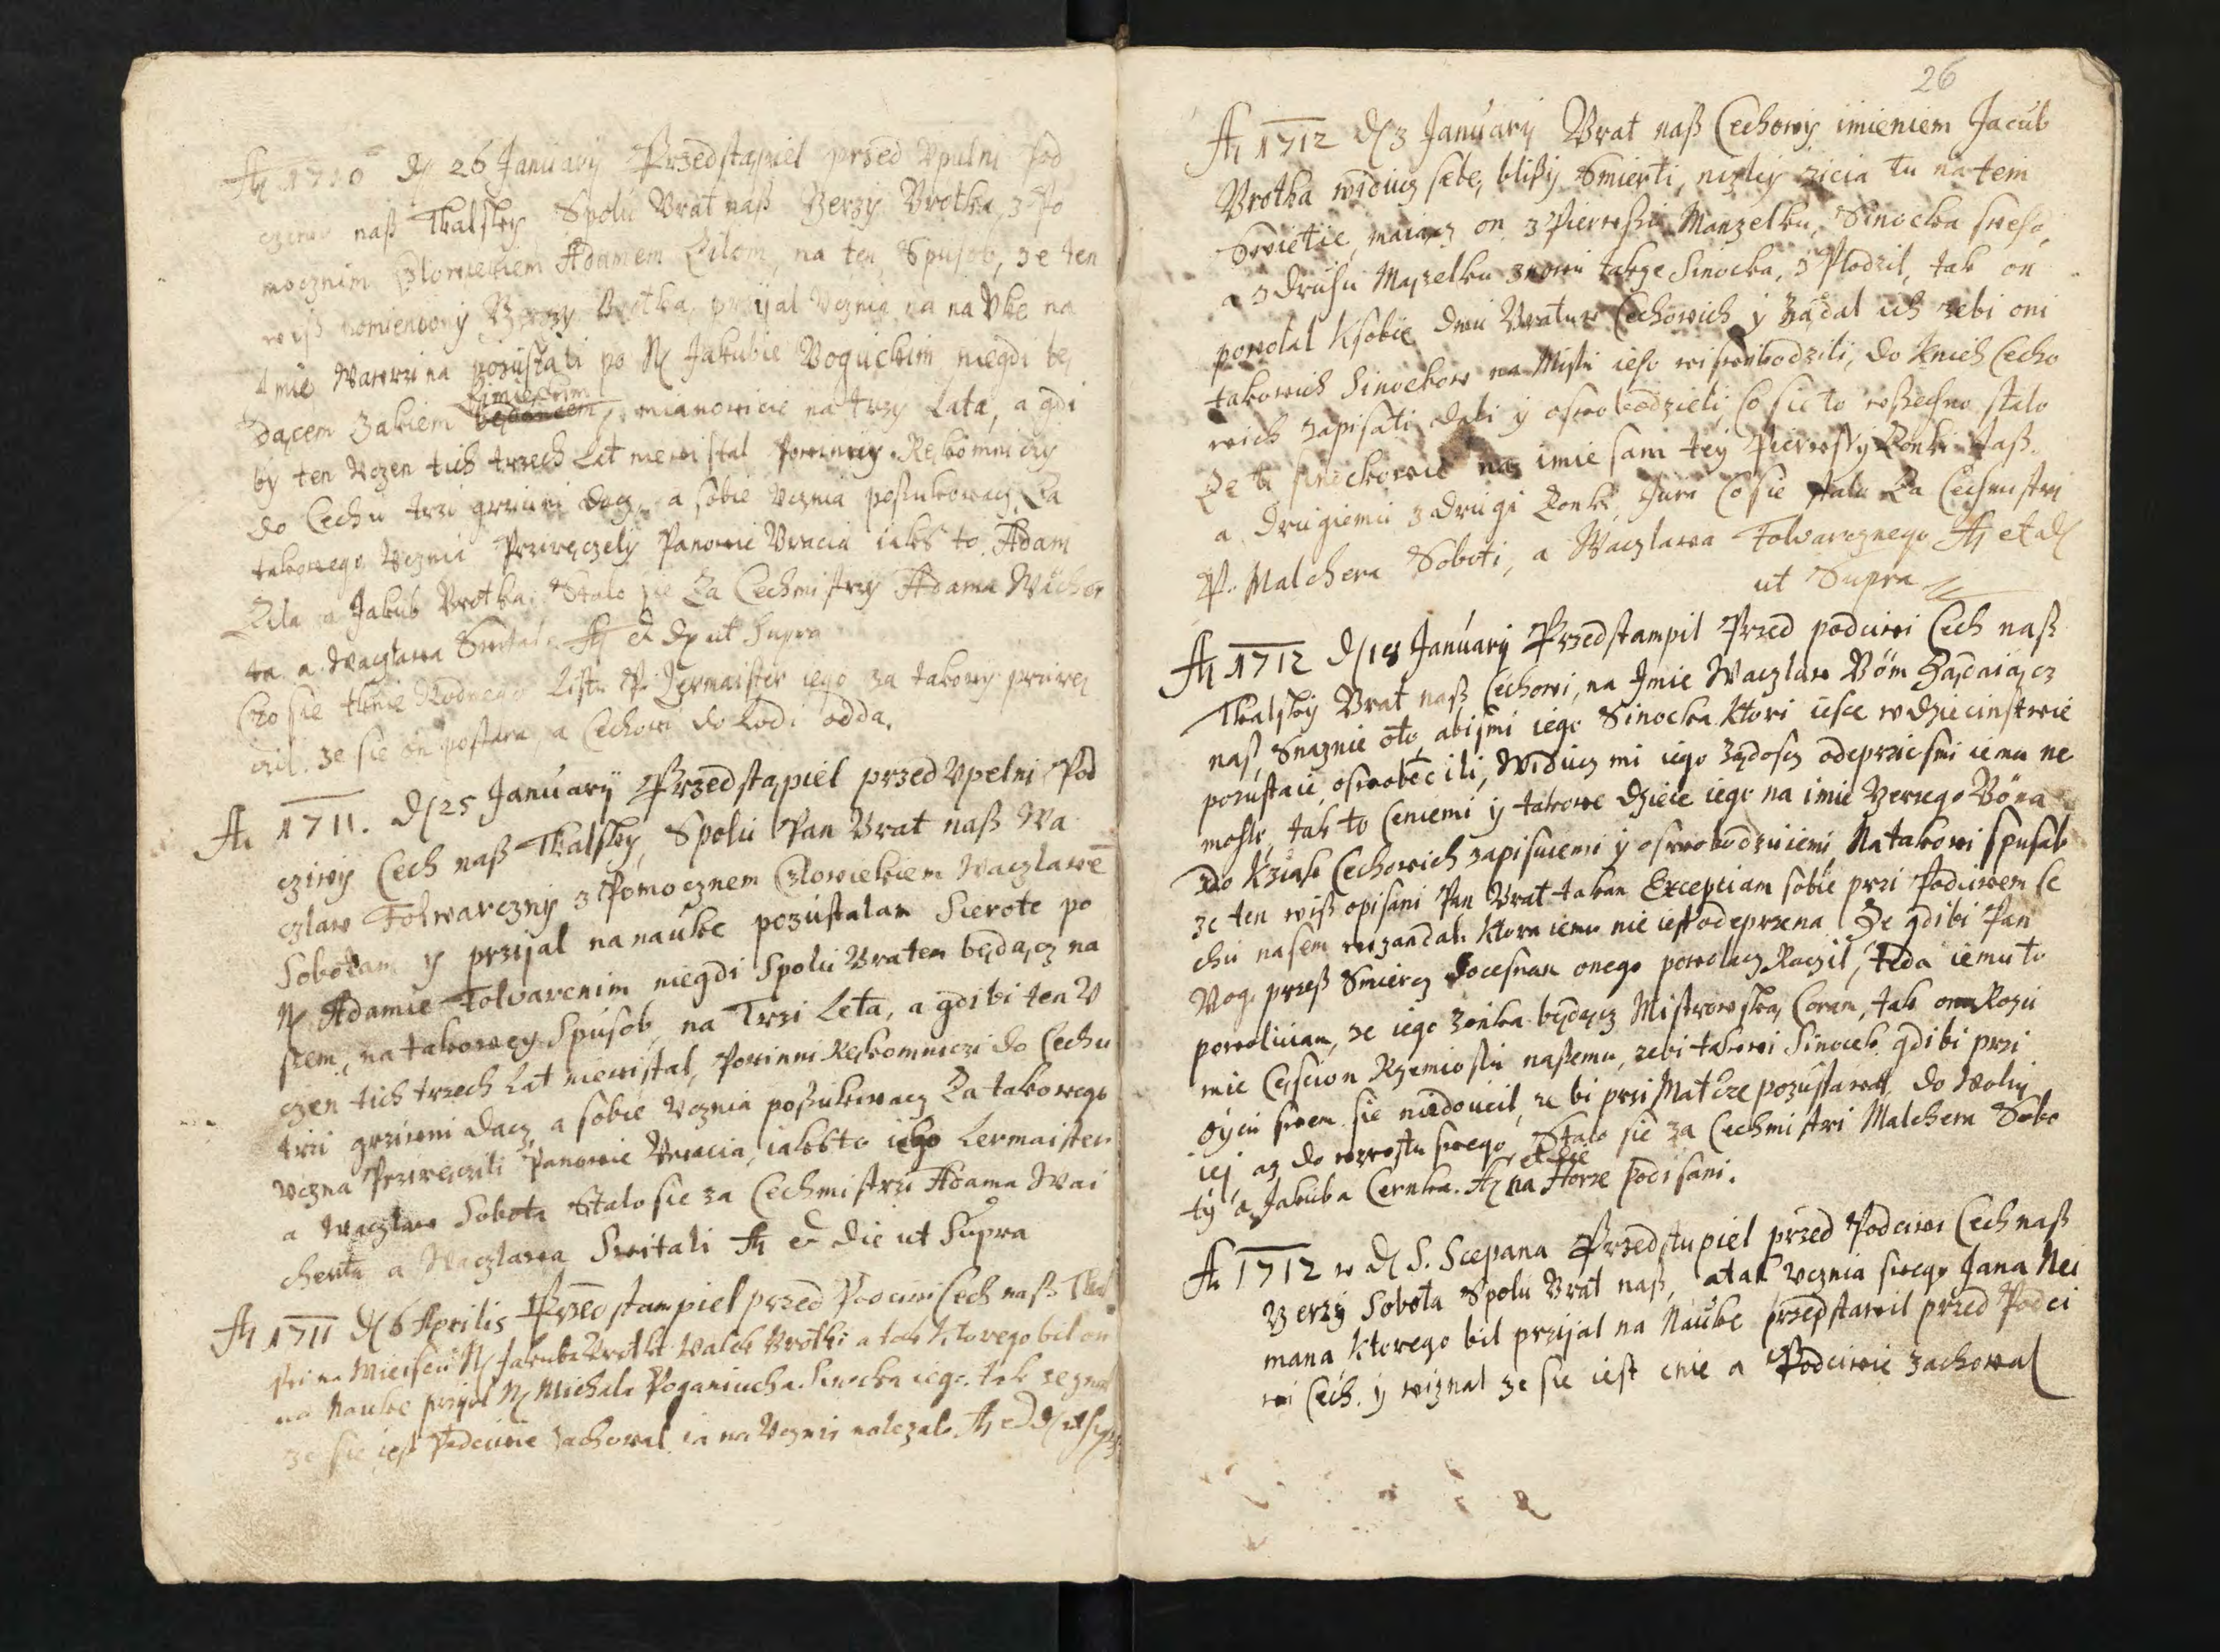 A 1710 d 26 January Przedstąpiel przed Vpulni Pod
naß Tkalsky Spolu Brat naß Berzy Brotka, z Po
mocznim Czlowiekiem Adamem Zilom, na ten Spusob, ze ten
wiß Berzy Brotka, przijal Vcznia na na Vke na
Imie Wawrzina pozustali po N Jakubie Boguckim niegdi bę
dącem Zakiem Ziemieckim, mianowicie na trzy Lata, a gdi
by ten Vczen tich trzech Lat niewistal Powinny Rękomniczy
do Cechu trzi grziwni dacz, a sobie Vcznia poßukowacz, Za
takowego Vcznia Prziręczely Panowie Bracia iakß to Adam
Zila a Jakub Brotka. Stalo sie Za Cechmistrzy Adama Wachar
ta a Waczlawa Switali A & d ut Supra
Czo sie Rodnego Listu P. Lermaister iego za takowy prziręc
cil. ze sie on postara, a Cechowi do Lodi odda.
A 1711. d 25 January Przedstąpiel przed Vpelni Pod
cziwy Cech naß Tkalsky, Spolu Pan Brat naß Wa
czlaw Folwarczny z Pomocznem Człowiekiem Waczlawē
Sobotam y przijal na nauke pozustalam Sierote po
N Adamie Folvarcnim niegdi Spolu Bratem będącz na
szem, na takowey Spusob, na Trzi Leta, a gdi bi ten V
czen tich trzech Lat niewistal, Powinni Rękomniczi do Cechu
trzi grziwni dacz, a sobie Vcznia poßukiwacz Za takowego
Vczna Prziręczili Panowie Bracia, iakßto iego Lermaister
a Waczlaw Sobota Stalo sie za Cechmistrzi Adama Wai
cherta a Waczlawa Switali A & die ut Supra
A 1711 d 6 Aprilis Przedstampiel przed Podciwi Cech naß Tkal
ski na Mieiscu N Jakuba Brotki Walek Brotki a tak ktorego bil on
na Nauke przijal N Michala Poganiucha Sinocka iego. tak zeznal
ze sie iest Podciwie zachowal ia na Vcznia nalezalo. A & d ut supra
26
A 1712 d 3 January Brat naß Cechowy imieniem Jacub
Brotka widiucz sebe, blißy Smierti, nizly zicia tu na tem
Swietie, maiącz on z Pierwßu Manzelku, Sinocka sweho,
a z Druhu Mazelku znowu takze Sinocka, z Plodzil, tak on
powolal Ksobie dwu Bratuw Cechowich y Ządal ich zebi oni
takowich Sinockow na Mistu ieho wiswobodzili, do Knich Cecho
wich zapisati dali y oswobodzieli, Co sie to wßechno stalo
Ze ti sinockowie na imie sam tey Pierwsÿ Zonki Jaß.
a Drugiemu z Drugi Zonki, Jura Co sie stalo Za Cechmistri
P. Malchera Soboti, a Waczlawa Folwarcznego A et d
ut Supra
A 1712 d 18 January Przedstampil Przed podciwi Cech naß
Tkalsky Brat naß Cechowi, na Imie Waczlaw Böm Ządaiącz
nas, Snaznie oto, abismi iego Sinocka ktori iesce w dziecinstwie
pozustaie, oswobocili, Widucz mi iego Ządoscz odeprzicsmi iemu ne
mohli, tak to Ceniemi y takowe dziecie iego na imie Berzego Böma
Do Kziah Cechowich zapisuiemi y oswobodzuiemi Na takowi spusab
ze ten wiß opisani Pan Brat takan Exceptiam sobie przi Podciwem Ce
chu nasem wizandal. ktora iemu nie iest odeprzena Ze gdibi Pan
Bog. przeß Smiercz docesnan onego powolacz Raczil, teda iemu to
powoluian, ze iego Zonka będącz Mistrowska Coran, tak on Rozu
mie Cescion Rzemioslu naßemu, zebi takowi Sinocek gdi bi przi
Oycu swem sie niedoucil, ze bi przi Matcze pozustawal, do Woli
iej az do wzrostu swego Stalo sie za Cechmistri Malchera Sobo
ty a Jakuba Cernka. A et die na Horze Podisani.
A 1712 w d S. Scepana Przedstupiel przed Podciwi Cech naß
Berzy Sobota Spolu Brat naß, a tak Vcznia swego Jana Nei
mana ktorego bil prziial na Nauke przedstawil przed Podci
wi Cech. y wiznal ze sie iest cnie a Podciwie zachowal